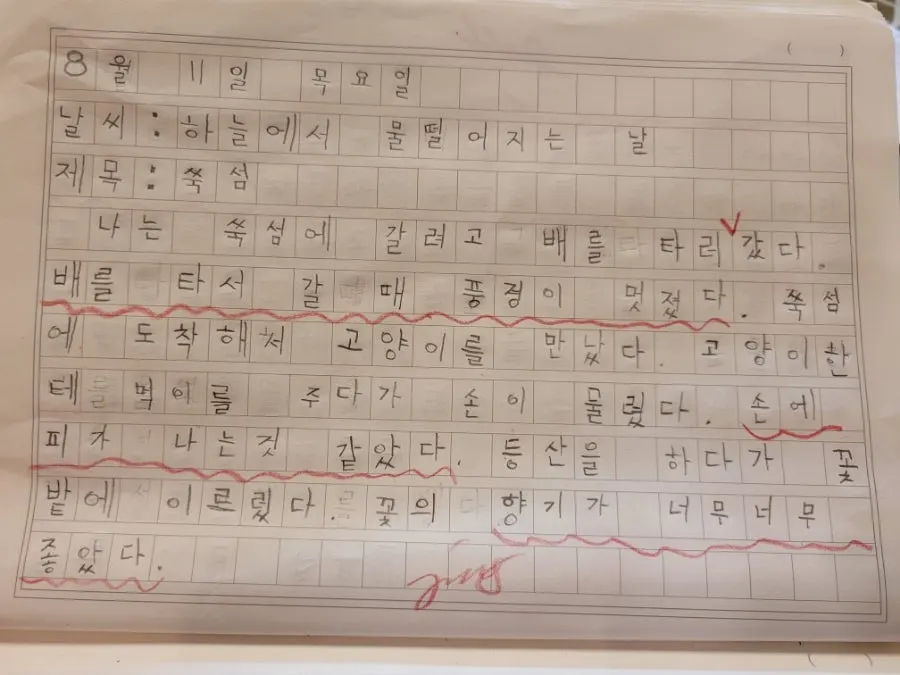 8월 11일 목요일
날씨:하늘에서 물떨어지는 날
제목:쑥섬
나는 쑥섬에 갈려고 배를 타러갔다.
배를 타서 갈 때 풍경이 멋졌다. 쑥섬
에 도착해처 고양이를 만났다. 고양이한
테 먹이를 주다가 손이 물렸다. 손에
피가 나는것 같았다. 등산을 하다가 꽃
밭에 이르렀다. 꽃의 향기가 너무너무
좋았다.